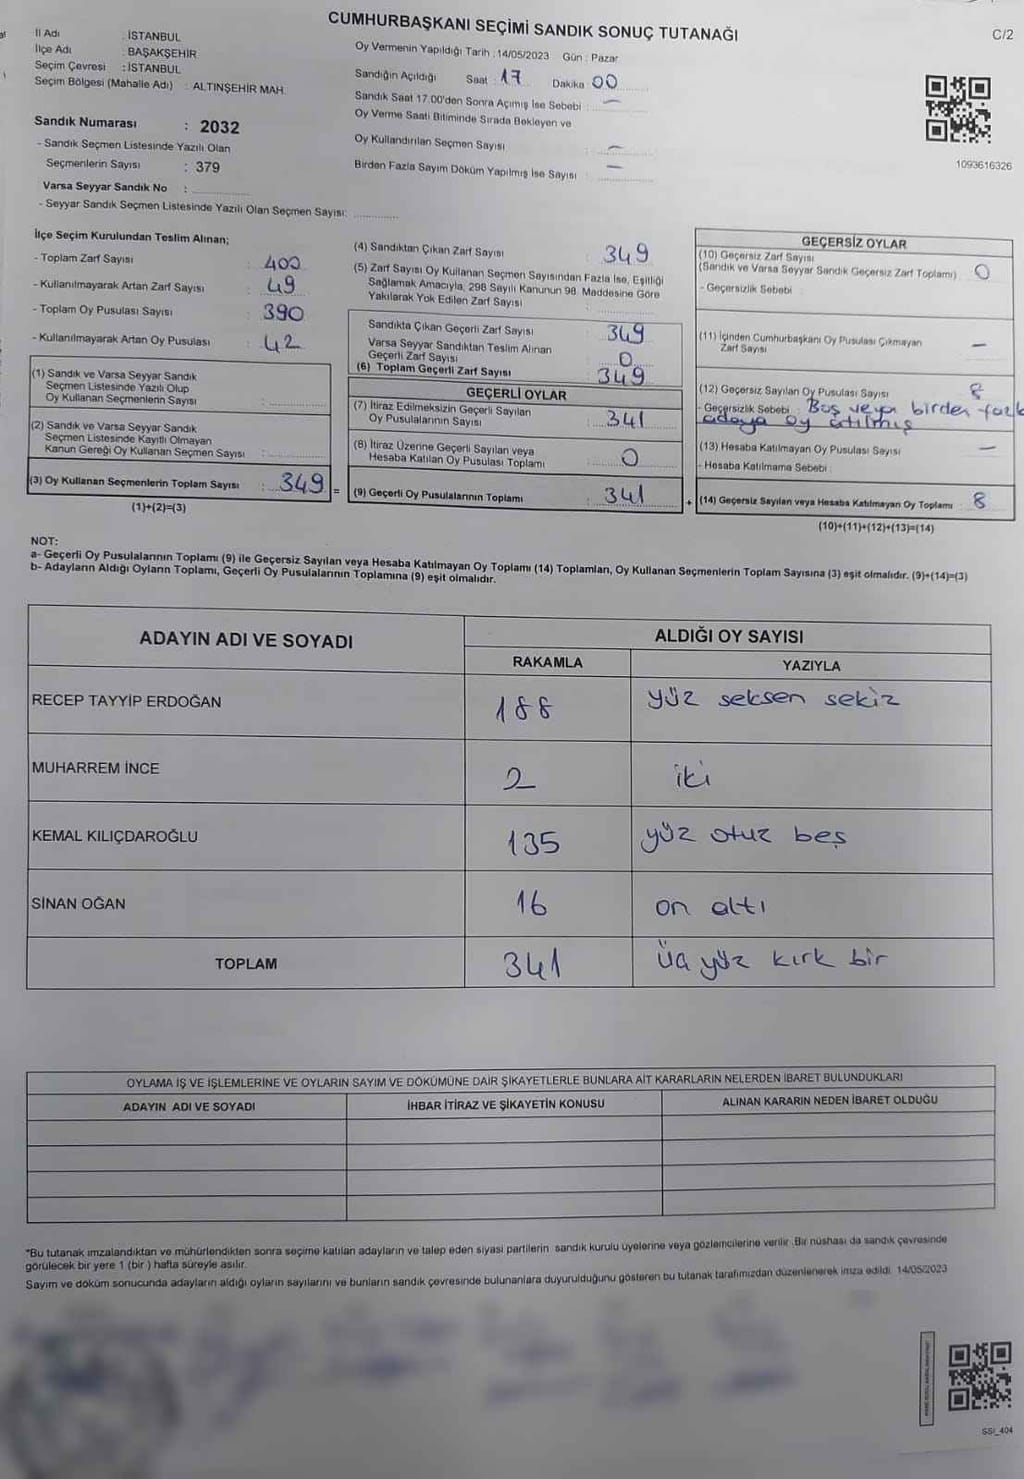 CUMHURBAŞKANI SEÇİMİ SANDIK SONUÇ TUTANAĞI
C/2
İl Adı : İSTANBUL
İlçe Adı : BAŞAKŞEHİR
Seçim Çevresi : İSTANBUL
Seçim Bölgesi (Mahalle Adı) : ALTINŞEHİR MAH.
Oy Vermenin Yapıldığı Tarih : 14/05/2023 Gün : Pazar
Sandığın Açıldığı Saat : 17 Dakika : 00
Sandık Saat 17.00'den Sonra Açımış İse Sebebi : —
Oy Verme Saati Bitiminde Sırada Bekleyen ve
Oy Kullandırılan Seçmen Sayısı : —
Birden Fazla Sayım Döküm Yapılmış İse Sayısı : —
1093616326
Sandık Numarası : 2032
- Sandık Seçmen Listesinde Yazılı Olan
Seçmenlerin Sayısı : 379
Varsa Seyyar Sandık No :
- Seyyar Sandık Seçmen Listesinde Yazılı Olan Seçmen Sayısı:
İlçe Seçim Kurulundan Teslim Alınan;
- Toplam Zarf Sayısı : 400
- Kullanılmayarak Artan Zarf Sayısı : 49
- Toplam Oy Pusulası Sayısı : 390
- Kullanılmayarak Artan Oy Pusulası : 42
(1) Sandık ve Varsa Seyyar Sandık
Seçmen Listesinde Yazılı Olup
Oy Kullanan Seçmenlerin Sayısı :
(2) Sandık ve Varsa Seyyar Sandık
Seçmen Listesinde Kayıtlı Olmayan
Kanun Gereği Oy Kullanan Seçmen Sayısı :
(3) Oy Kullanan Seçmenlerin Toplam Sayısı : 349 =
(1)+(2)=(3)
(4) Sandıktan Çıkan Zarf Sayısı 349
(5) Zarf Sayısı Oy Kullanan Seçmen Sayısından Fazla İse, Eşitliği
Sağlamak Amacıyla, 298 Sayılı Kanunun 98. Maddesine Göre
Yakılarak Yok Edilen Zarf Sayısı :
Sandıkta Çıkan Geçerli Zarf Sayısı : 349
Varsa Seyyar Sandıktan Teslim Alınan
Geçerli Zarf Sayısı : 0
(6) Toplam Geçerli Zarf Sayısı : 349
GEÇERLİ OYLAR
(7) İtiraz Edilmeksizin Geçerli Sayılan
Oy Pusulalarının Sayısı : 341
(8) İtiraz Üzerine Geçerli Sayılan veya
Hesaba Katılan Oy Pusulası Toplamı : 0
(9) Geçerli Oy Pusulalarının Toplamı : 341 +
GEÇERSİZ OYLAR
(10) Geçersiz Zarf Sayısı
(Sandık ve Varsa Seyyar Sandık Geçersiz Zarf Toplamı) : 0
- Geçersizlik Sebebi :
(11) İçinden Cumhurbaşkanı Oy Pusulası Çıkmayan
Zarf Sayısı —
(12) Geçersiz Sayılan Oy Pusulası Sayısı 8
- Geçersizlik Sebebi : Boş veya birden fazla
adaya oy atılmış
(13) Hesaba Katılmayan Oy Pusulası Sayısı —
- Hesaba Katılmama Sebebi :
(14) Geçersiz Sayılan veya Hesaba Katılmayan Oy Toplamı : 8
(10)+(11)+(12)+(13)=(14)
NOT:
a- Geçerli Oy Pusulalarının Toplamı (9) ile Geçersiz Sayılan veya Hesaba Katılmayan Oy Toplamı (14) Toplamları, Oy Kullanan Seçmenlerin Toplam Sayısına (3) eşit olmalıdır. (9)+(14)=(3)
b- Adayların Aldığı Oyların Toplamı, Geçerli Oy Pusulalarının Toplamına (9) eşit olmalıdır.
ADAYIN ADI VE SOYADI
ALDIĞI OY SAYISI
RAKAMLA YAZIYLA
RECEP TAYYİP ERDOĞAN 188 yüz seksen sekiz
MUHARREM İNCE 2 iki
KEMAL KILIÇDAROĞLU 135 yüz otuz beş
SİNAN OĞAN 16 on altı
TOPLAM 341 üç yüz kırk bir
OYLAMA İŞ VE İŞLEMLERİNE VE OYLARIN SAYIM VE DÖKÜMÜNE DAİR ŞİKAYETLERLE BUNLARA AİT KARARLARIN NELERDEN İBARET BULUNDUKLARI
ADAYIN ADI VE SOYADI İHBAR İTİRAZ VE ŞİKAYETİN KONUSU ALINAN KARARIN NEDEN İBARET OLDUĞU
*Bu tutanak imzalandıktan ve mühürlendikten sonra seçime katılan adayların ve talep eden siyasi partilerin sandık kurulu üyelerine veya gözlemcilerine verilir. Bir nüshası da sandık çevresinde
görülecek bir yere 1 (bir ) hafta süreyle asılır.
Sayım ve döküm sonucunda adayların aldığı oyların sayılarını ve bunların sandık çevresinde bulunanlara duyurulduğunu gösteren bu tutanak tarafımızdan düzenlenerek imza edildi. 14/05/2023
SSI_404